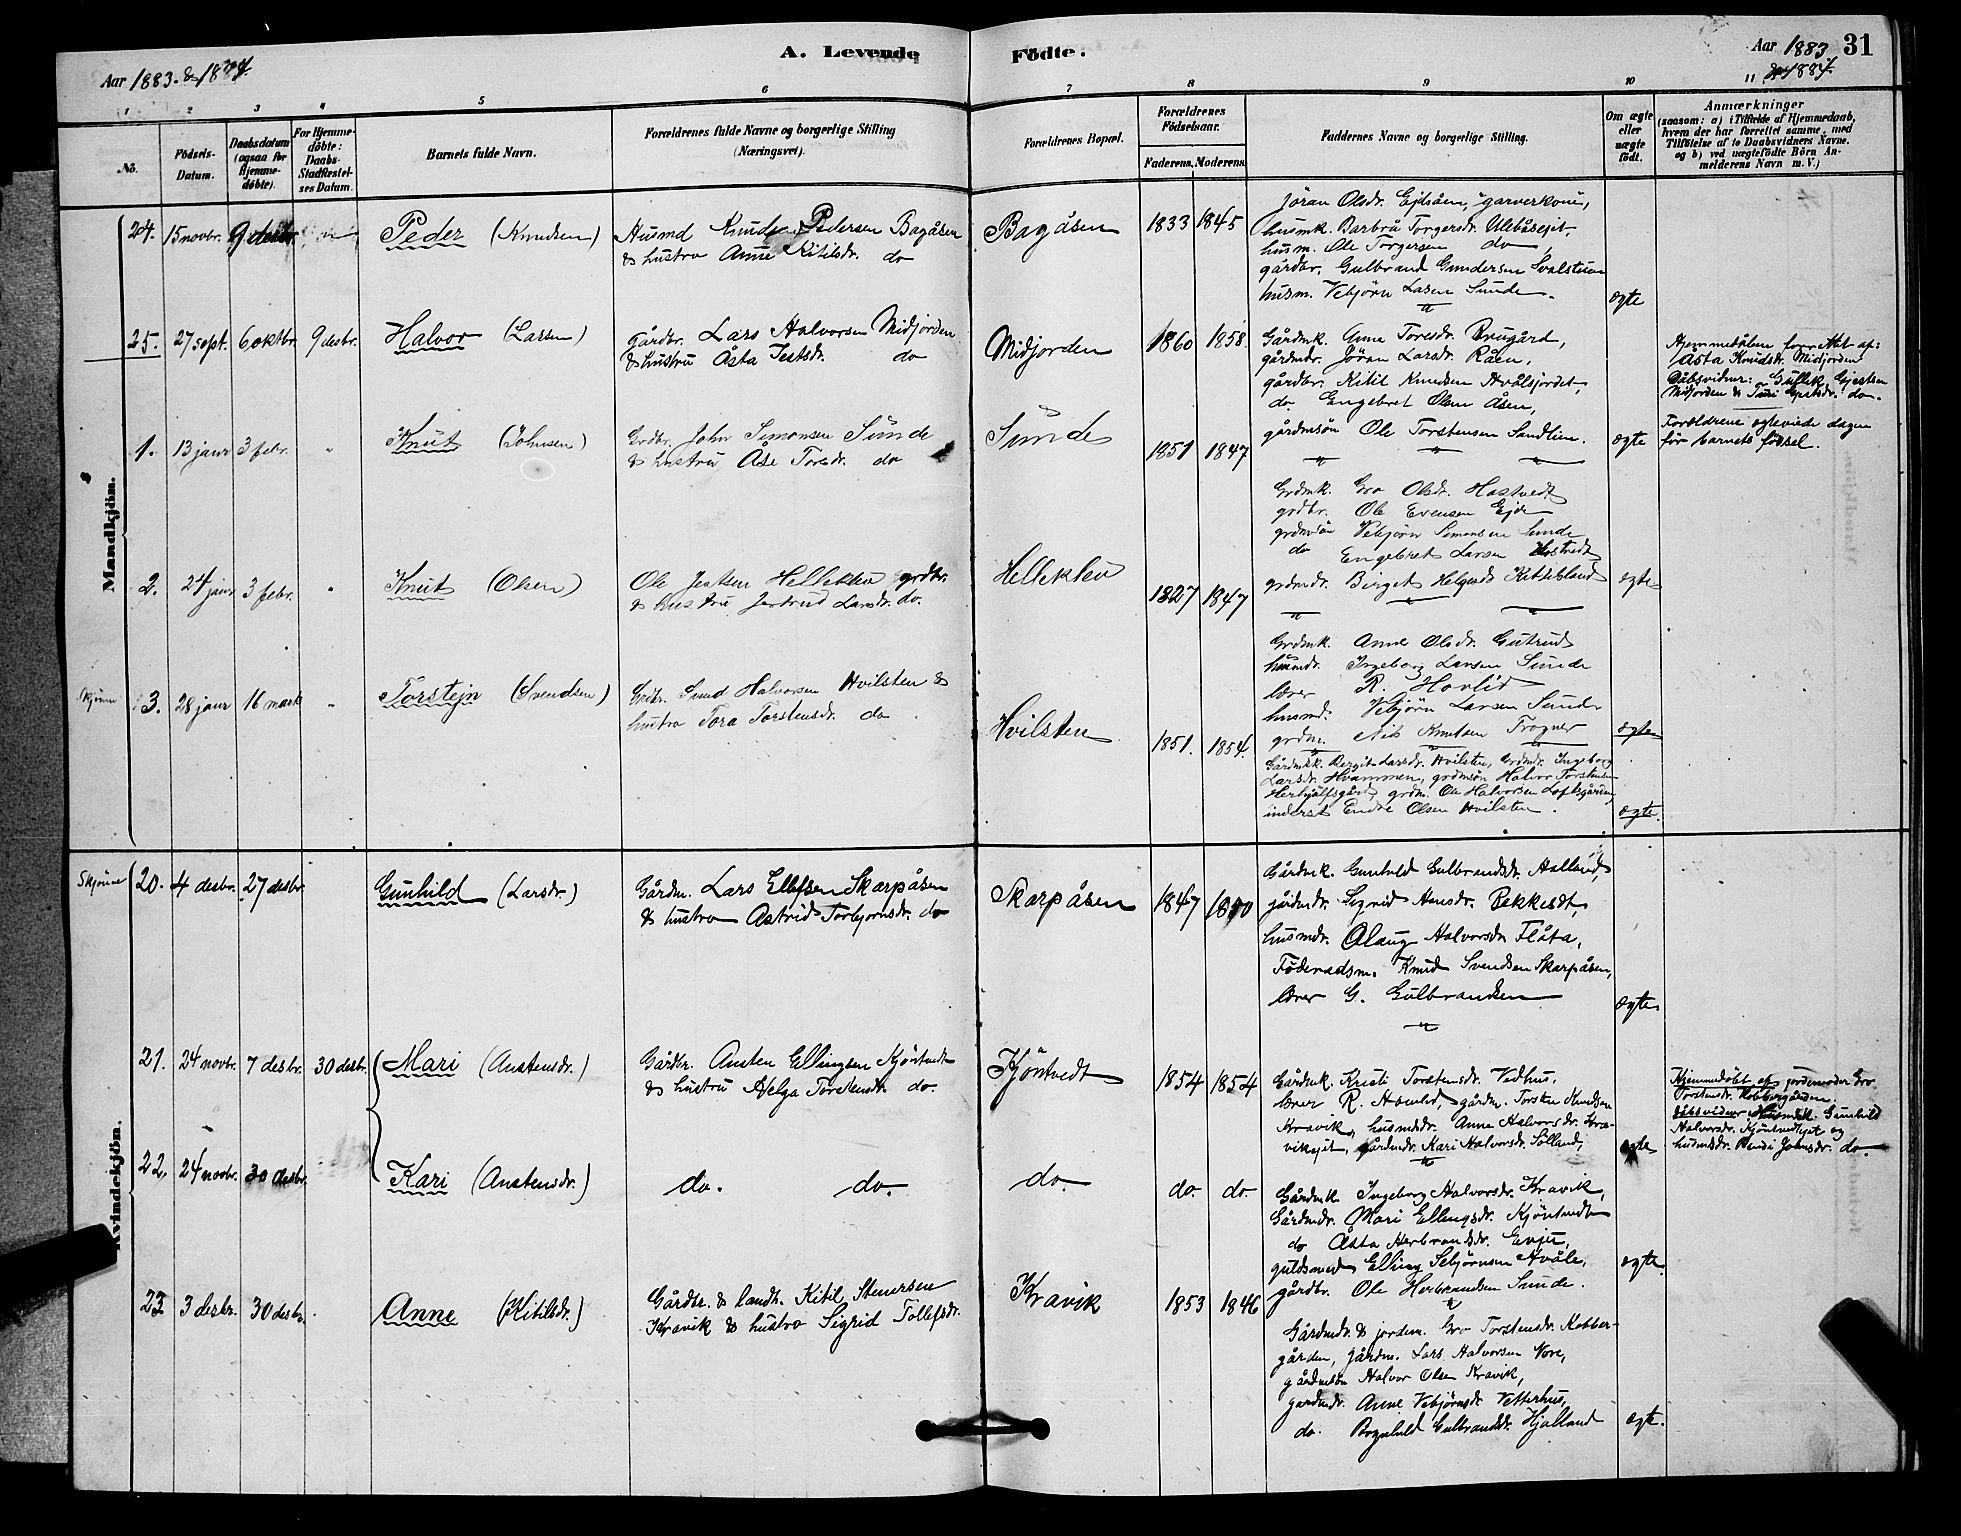 A. Levende Fødte.
Aar 1883. & 1884.
Aar 1883 31
& 1884.
1 2 3 4 5 6 7 8 9 10 11
No.
Fødsels-
Datum.
Daabsdatum
(ogsaa for
Hjemme-
døbte).
For Hjemme-
døbte:
Daabs-
Stadfæstel-
ses Datum.
Barnets fulde Navn.
Forældrenes fulde Navne og borgerlige Stilling
(Næringsvei).
Forældrenes Bopæl.
Forældrenes
Fødselsaar.
Faderens. Moderens.
Faddernes Navne og borgerlige Stilling.
Om ægte
eller
uægte
født.
Anmærkninger
(saasom: a) i Tilfælde af Hjemmedaab,
hvem der har forrettet samme, med
Tilføielse af to Daabsvidners Navne.
og b) ved uægtefødte Börn An-
melderens Navn m. V.)
Mandkjön.
24. 15 novbr. 9 desbr. Peder (Knudsen)
Husmd Knud Pedersen Bagåsen
& hustro Anne Kitilsdr. do
Bagåsen 1833 1845
Jöran Olsdr. Ejdsåen, garverkone,
husmk. Barbrå Torgersdr. Ulebåsejet,
husm. Ole Torgersen do
gårdbr. Gulbrand Gundersen Svalstuen
husm. Vebjörn Larsen Sunde.
ægte
25. 27 sept. 6 oktbr. 9 desbr. Halvor (Larsen)
gårdbr. Lars Halvorsen Midjorden
& hustru Åsta Jestsdr. do
Midjorden 1860 1858.
Gårdmk. Anne Toresdr. Brugård,
gårdmdr. Jöran Larsdr. Råen,
gårdbr. Kitil Knudsen Hvålsjordet,
do. Engebret Olsen Åsen,
gårdmsön Ole Torstensen Sandlien.
ægte
Hjemmedåben forrettet af:
Åsta Knudsdr. Midjorden
Dåbsvidner: Gullik Gjestsen
Midjorden & Turi do.
Forældrene ægteviede dagen
för barnets födsel.
1. 13 janr 3 febr. " Knut (Johnsen)
Grdbr. John Simonsen Sunde
& hustru Åse Toresdr. do
Sunde 1851 1847
Grdmk. Gro Olsdr. Hostvedt
grdbr. Ole Evensen Ejde
grdmsön Vebjörn Simonsen Sunde
do Engebret Larsen Hostvedt
grdmdr. Birget Helgesdr. Kittilsland
ægte
2. 24 janr 3 febr. " Knut (Olsen)
Ole Jestsen Helleklev grdbr.
& hustru Jertrud Larsdr. do.
Helleklev 1827 1847
Grdmk. Anne Olsdr. Gutrud
husmdr. Ingeborg Larsen Sunde
lærer R. Hovlid
husmd. Vebjörn Larsen Sunde
grdm. Nils Knutsen Trogner
ægte
Skjönne 3. 28 janr 16 mark " Torstejn (Svendsen)
Grdbr. Svend Halvorsen Hvilsten &
hustro Tora Torstensdr. do
Hvilsten 1851. 1854.
Gårdmk. Bergit Larsdr. Hvilsten, Grdmdr. Ingeborg
Larsdr. Hvammen, grdmsön Halvor Torstensen
Herbjålfsgård, grdm. Ole Halvorsen Loftsgården
inderst Endre Olsen Hvilsten.
ægte.
Kvindekjön.
Skjönne 20. 4 desbr. 27 desbr. Gunhild (Larsdr.)
Gårdm. Lars Ellefsen Skarpåsen
& hustro Astrid Torbjornsdr. do
Skarpåsen 1847 1850
Gårdmk. Gunhild Gulbrandsdr. Halland,
Sigrid Bekkesdt,
husmdr. Olaug Halvorsdr. Flåta,
Föderadsm. Knud Svendsen Skarpåsen,
lærer G. Gulbrandsen
ægte.
21. 24 novbr. 7 desbr. 30 desbr. Mari (Anstensdr.)
Gårdbr. Ansten Ellingsen Kjöntvedt
& hustru Helga Torstensdr. do.
Kjöntvedt 1854 1854
Gårdmk. Kristi Torstensdr. Vedhus,
lærer R. Hovlid, gårdm. Torsten Knudsen
Kravik, husmdr. Anne Halvorsdr. Kra-
vikejet, gårdmdr. Kari Halvorsdr. Solland,
ægte
Hjemmedöbt af jordemoder Gro
Torstensdr. Kobbergården.
Dåbsvidner: Husmdsk. Gunhild
Halvorsdr. Kjöntvedtejet og
husmdr. Johnsdr. do.
22. 24 novbr. 30 desbr. Kari (Anstensdr.)
do. do.
do. do. do.
Gårdmk. Ingeborg Halvorsdr. Kravik,
Gårdmdr. Mari Ellingsdr. Kjöntvedt
do Åsta Herbrandsdr. Evju,
guldsmed Elling Sebjörnsen Hvåle,
gårdbr. Ole Herbrandsen Sunde.
ægte.
23 3 desbr. 30 desbr. Anne (Kitilsdr.)
Gårdbr. & landh. Kitil Stenersen
Kravik & hustro Sigrid Tollefsdr.
Kravik 1853 1846
Gårdmdr. & jordem. Gro Torstensdr. Kobber-
gården, gårdm. Lars Halvorsen Nore,
gårdmsön Halvor Olsen Kravik,
gårdmdr. Anne Vebjörnsdr. Vetterhus,
do. Borghild Gulbrandsdr. Hjalland
ægte.